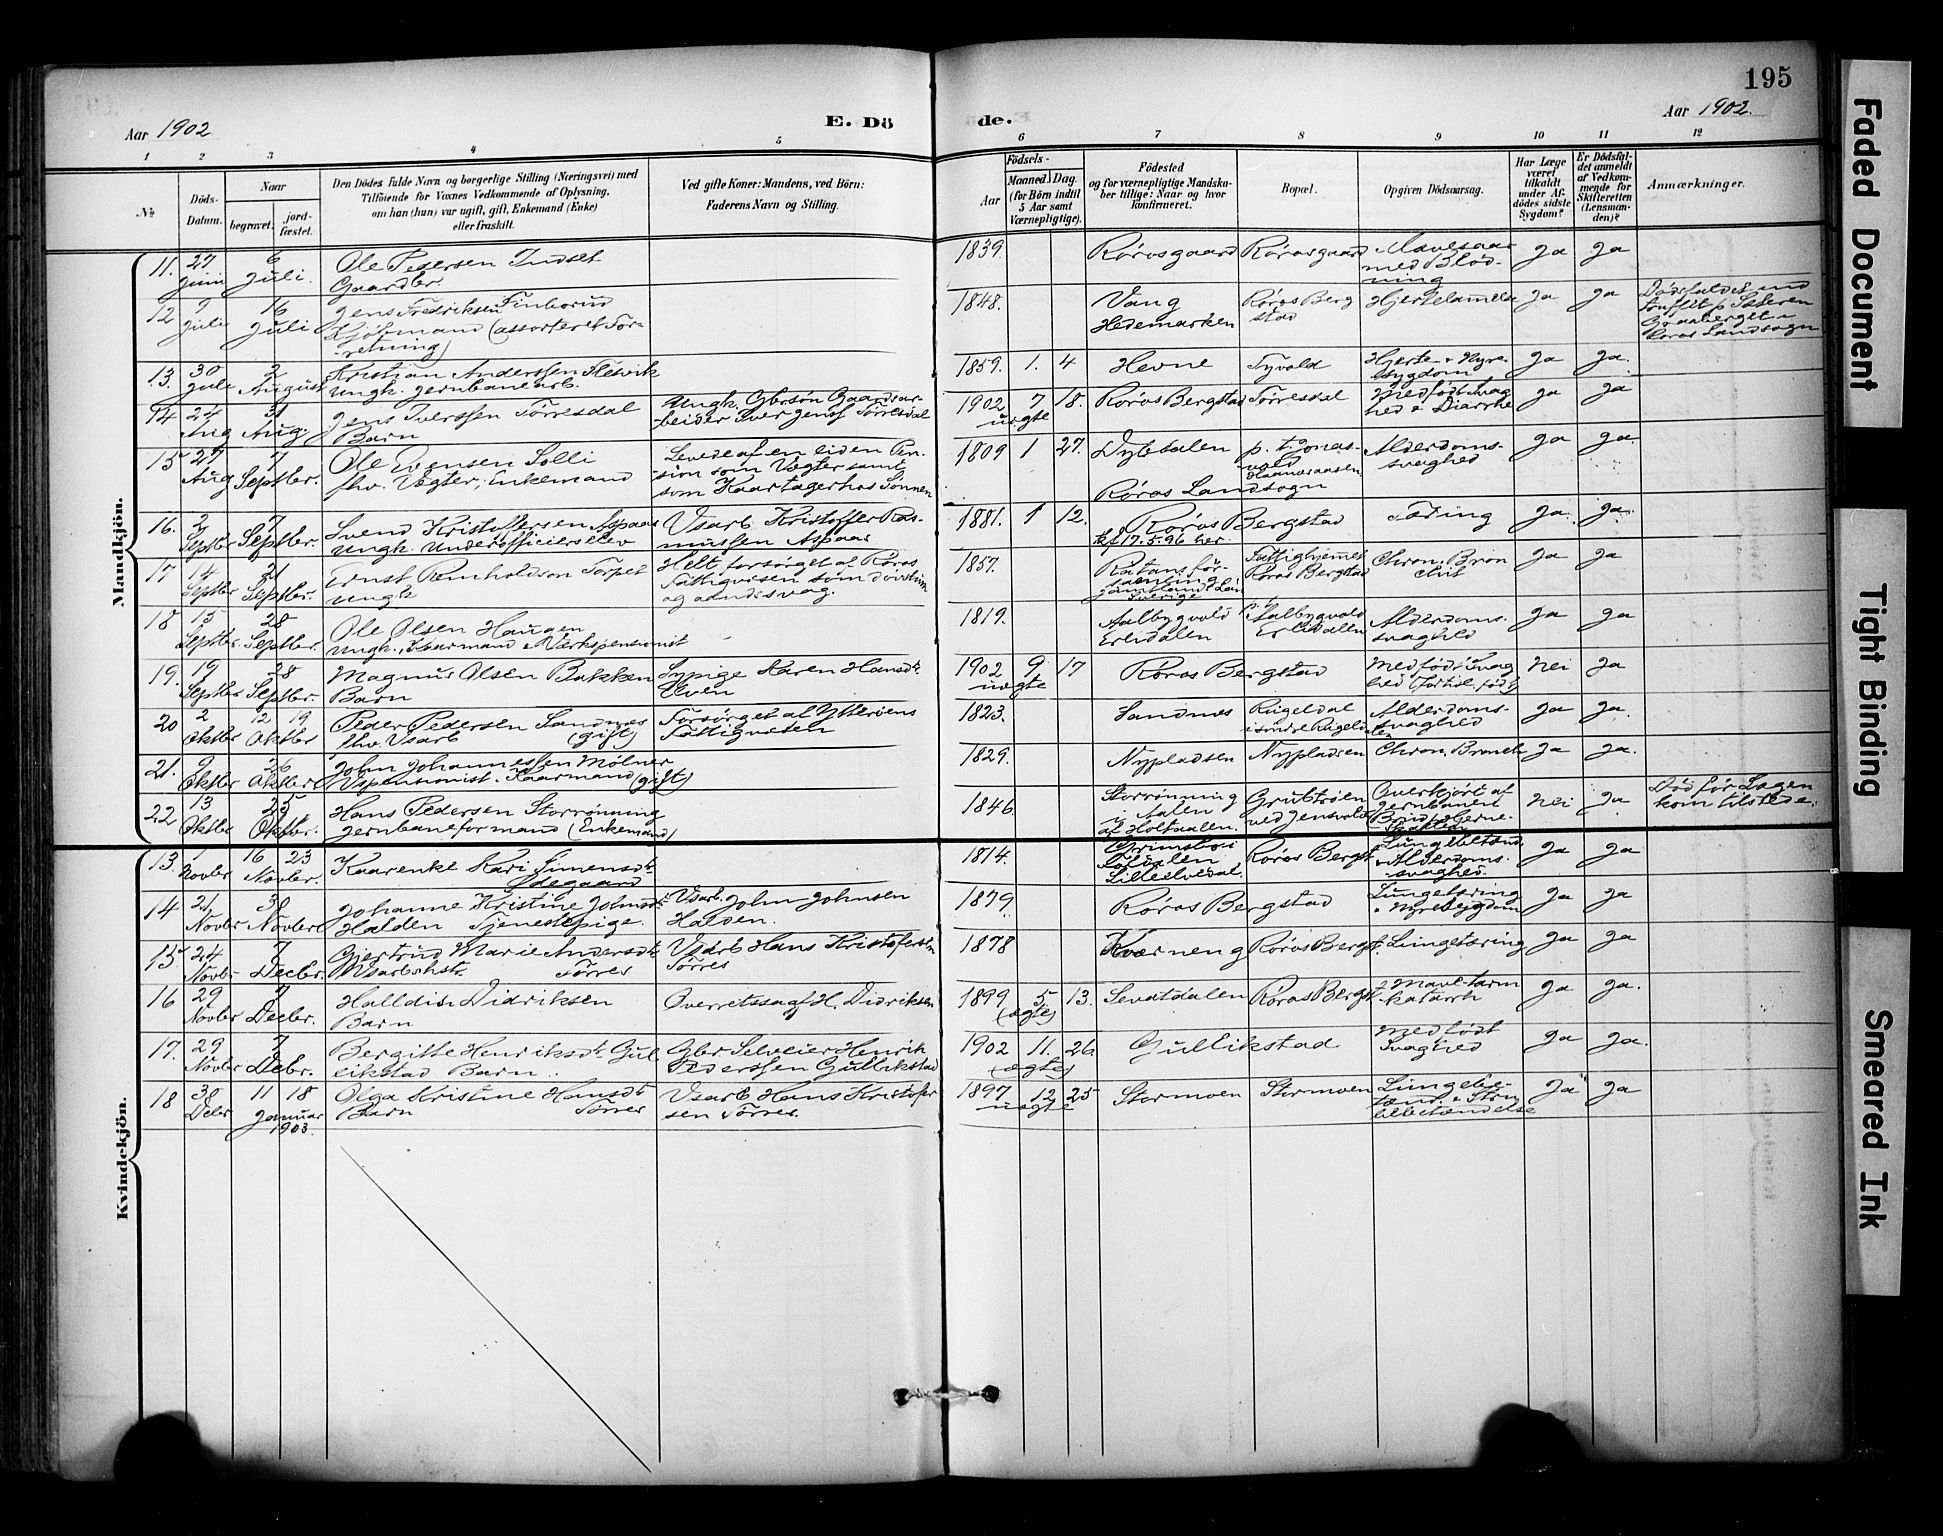 195
Aar 1902
E. Dö
de.
Aar 1902.
1 2 3 4 5 6 7 8 9 10 11 12
№
Döds-
Datum.
Naar
begravet.
jord-
fæstet.
Den Dödes fulde Navn og borgerlige Stilling (Næringsvei) med
Tilföiende for Voxnes Vedkommende af Oplysning,
om han (hun) var ugift, gift, Enkemand (Enke)
eller fraskilt.
Ved gifte Koner: Mandens, ved Börn:
Faderens Navn og Stilling.
Födsels-
Aar
Maaned. Dag.
(for Börn indtil
5 Aar samt
Værnepligtige).
Födested
og for værnepligtige Mandska-
ber tillige: Naar og hvor
konfirmeret.
Bopæl.
Opgiven Dödsaarsag.
Har Læge
været
tilkaldt
under Af-
dödes sidste
Sygdom?
Er Dödsfal-
det anmeldt
af Vedkom-
mende for
Skifteretten
(Lensman-
den)?
Anmærkninger.
Mandkjön.
11. 27 Juni 6 Juli. Ole Pedersen Indset
Gaardbr.
1839. Rørosgaard Rørosgaard Mavesaar
med Blød-
ning Ja Ja
12 9 Juli 16 Juli Jens Fredriksen Finborud
Kjøbmand (assorteret For-
retning)
1848. Vang
Hedemarken Røros Berg
stad Hjertelamelse Ja Ja Dødsfaldet ind
truffet p. Sæteren
Røros Landsogn
13. 30 Juli 2 August Kristian Anderssen Hesvik
Ungk. Jernbanearb.
1859. 1. 4 Hevne Tyvold Hjerte & Nyre-
sygdom Ja Ja.
14 24 Aug 31 Aug. Jens Iverssen Tørresdal
Barn
Ungk. Gbrsøn Gaardsar-
beider Iver Jensf Tørresdal
1902 7 18. uægte Røros Bergstad Tørresdal Medfødt Svag
hed & Diarrhe Ja Ja
15 27 Aug 7 Septbr. Ole Evensen Solli
fhv. Vægter, Enkemand
Levede af en liden Pen-
sion som Vægter samt
som Kaartager hos Sønnen
1809 1 27. Dybdalen
Røros Landsogn p. t. Jonas-
vold Alderdoms-
svaghed Ja Ja.
16. 2 Septbr 7 Septbr. Svend Kristoffersen Aspaas
Ungk. Underofficierselev
Vsarb. Kristoffer Ras-
mussen Aspaas
1881. 1 12. Røros Bergstad
kf 17.5.96 her. Tæring Ja. Ja.
17 14 Septbr 21 Septbr. Ernst Reinholdson Torpet
Ungk
Helt forsørget af Røros
Fattigvæsen som døvstum
og aandssvag.
1857. Ratans för-
samling
Jämtlands Län
Sverige Fattighjemmet
Røros Bergstad Chron. Bron
chit Ja Ja
18 15 Septbr. 28 Septbr. Ole Olsen Haugen
Ungk., Kaarmand & Værkspensionist
1819. Aalbygvold
Erlidalen Aalbygvold
Erlidalen Alderdoms.
svaghed Ja Ja
19. 19 Septbr 28 Septbr. Magnus Olsen Bakken
Barn
Sypige Karen Hansdr
Elven
1902 9. 17 uægte Røros Bergstad Medfødt Svag
hed (fortid. født) Nei Ja
20 2 Oktbr 12 19 Oktbr Peder Pedersen Sandnes
fhv. Vsarb (gift)
Forsørget af Ytterøens
Fattigvæsen
1823. Sandnes Rugeldal
i søndre Rugeldalen Alderdoms-
svaghed Ja Ja.
21. 9 Oktbr 26 Oktbr. John Johannessen Mølner
Vspensionist. Kaarmand (gift)
1829. Nypladsen Nypladsen Chron. Bronch Ja Ja.
22 13 Oktbr 25 Oktbr. Hans Pedersen Storrønning
Jernbaneformand (Enkemand)
1846. Storrønning
i Aalen
af Holtaalen. Grubtrøen
ved Jensvold Overkjørt af
Jernbanen Nei Ja Død før Lægen
kom tilstede.
Kvindekjön.
13. 1 Novbr 16 23 Novbr. Kaarenke Kari Simensdtr
Ødegaard
1814. Grimsbo i
Foldalen
Lilleelvedal. Røros Bergst Lungebetænd.
& Alderdoms.
svaghed. Ja Ja
14 21 Novbr 30 Novbr Johanne Kristine Johnsdtr
Halden Tjenestepige.
Vsarb. John Johnsen
Halden.
1879. Røros Bergstad Lungetæring
& Nyresygdom Ja Ja
15 24 Novbr 7 Decbr. Gjertrud Marie Andersdtr
Vsarbshstr Tørres
Vsarb Hans Kristofersen
Tørres
1878 Kværneng Røros Bergst. Lungetæring Ja Ja
16 29 Novbr 7 Decbr. Halldis Didriksen
Barn
Overretssagf. H. Didriksen
1899 5. 13. (ægte) Levatdalen Røros Bergst & Mave-tarm
katarrh Ja Ja.
17. 29 Novbr 7 Debr. Bergitte Henriksdtr Gul
likstad Barn.
Gbr Selveier Henrik
Pederssen Gullikstad
1902 11. 26 (ægte) Gullikstad Medfødt
Svaghed Ja Ja.
18 30 Debr 11 18 Januar
1903. Olga Kristine Hansdtr
Barn Tørres
Vsarb Hans Kristofer
sen Tørres.
1897 12 25 uægte Stormoen Stormoen Lungebe-
tænd. Ja Ja
Faded Document
Tight Binding
Smeared Ink